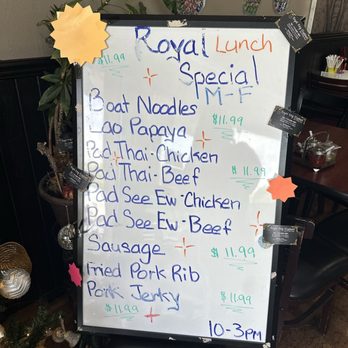 Royal Lunch
$11.99
Special
M-F
Boat Noodles
$11.99
Lao Papaya
Pad Thai-Chicken
Pad Thai-Beef
$11.99
Pad See Ew-Chicken
Pad See Ew-Beef
Sausage
$11.99
Fried Pork Rib
Pork Jerky
$11.99
$11.99
10-3PM